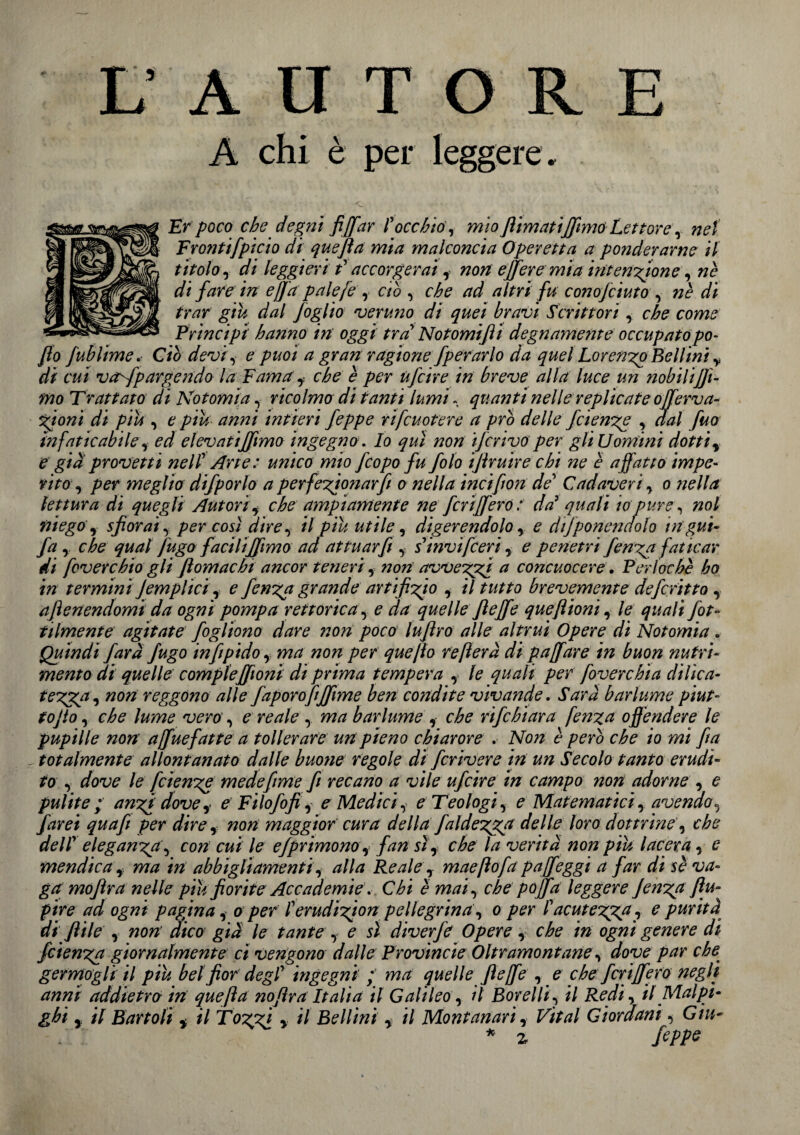 L'AUTORE
A chi è per leggere.
PEr poco che degni fiſſar l'occhio, mio ſtimatiſſimo Lettore, nel
Frontiſpicio di queſta mia malconcia Operetta a ponderarne il
titolo, di leggieri t'accorgerai, non eſſere mia intenzione, nè
di fare in eſſa paleſe, ciò, che ad altri fu conoſciuto, nè di
trar giù dal ſoglio veruno di quei bravi Scrittori, che come
Principi hanno in oggi tra' Notomiſti degnamente occupato po-
ſto ſublime. Ciò devi, e puoi a gran ragione ſperarlo da quel Lorenzo Bellini,
di cui va ſpargendo la Fama, che è per uſcire in breve alla luce un nobiliſſi-
mo Trattato di Notomia, ricolmo di tanti lumi, quanti nelle replicate oſſerva-
zioni di più, e più anni intieri ſeppe riſcuotere a prò delle ſcienze, dal ſuo
infaticabile, ed elevatiſſimo ingegno. Io quì non iſcrivo per gli Uomini dotti,
e già provetti nell'Arte: unico mio ſcopo fu ſolo iſtruire chi ne è affatto impe-
rito, per meglio diſporlo a perfezionarſi o nella inciſion de' Cadaveri, o nella
lettura di quegli Autori, che ampiamente ne ſcriſſero: da' quali io pure, nol
niego, sfiorai, per così dire, il più utile, digerendolo, e diſponendolo in gui-
ſa, che qual ſugo faciliſſimo ad attuarſi, s'inviſceri, e penetri ſenza faticar
di ſoverchio gli ſtomachi ancor teneri, non avvezzi a concuocere. Perlochè ho
in termini ſemplici, e ſenza grande artifizio, il tutto brevemente deſcritto,
aſtenendomi da ogni pompa rettorica, e da quelle ſteſſe queſtioni, le quali ſot-
tilmente agitate ſogliono dare non poco luſtro alle altrui Opere di Notomia.
Quindi ſarà ſugo inſipido, ma non per queſto reſterà di paſſare in buon nutri-
mento di quelle compleſſioni di prima tempera, le quali per ſoverchia dilica-
tezza, non reggono alle ſaporoſiſſime ben condite vivande. Sarà barlume piut-
toſto, che lume vero, e reale, ma barlume, che riſchiara ſenza offendere le
pupille non aſſuefatte a tollerare un pieno chiarore. Non è però che io mi ſia
totalmente allontanato dalle buone regole di ſcrivere in un Secolo tanto erudi-
to, dove le ſcienze medeſime ſi recano a vile uſcire in campo non adorne, e
pulite; anzi dove, e Filoſofi, e Medici, e Teologi, e Matematici, avendo,
ſarei quaſi per dire, non maggior cura della ſaldezza delle loro dottrine, che
dell'eleganza, con cui le eſprimono, fan sì, che la verità non più lacera, e
mendica, ma in abbigliamenti, alla Reale, maeſtoſa paſſeggi a far di sè va-
ga moſtra nelle più fiorite Accademie. Chi è mai, che poſſa leggere ſenza ſtu-
pire ad ogni pagina, o per l'erudizion pellegrina, o per l'acutezza, e purità
di ſtile, non dico già le tante, e sì diverſe Opere, che in ogni genere di
ſcienza giornalmente ci vengono dalle Provincie Oltramontane, dove par che
germogli il più bel fior degl'ingegni; ma quelle ſteſſe, e che ſcriſſero negli
anni addietro in queſta noſtra Italia il Galileo, il Borelli, il Redi, il Malpi-
ghi, il Bartoli, il Tozzi, il Bellini, il Montanari, Vital Giordani, Giu-
* 2 ſeppe